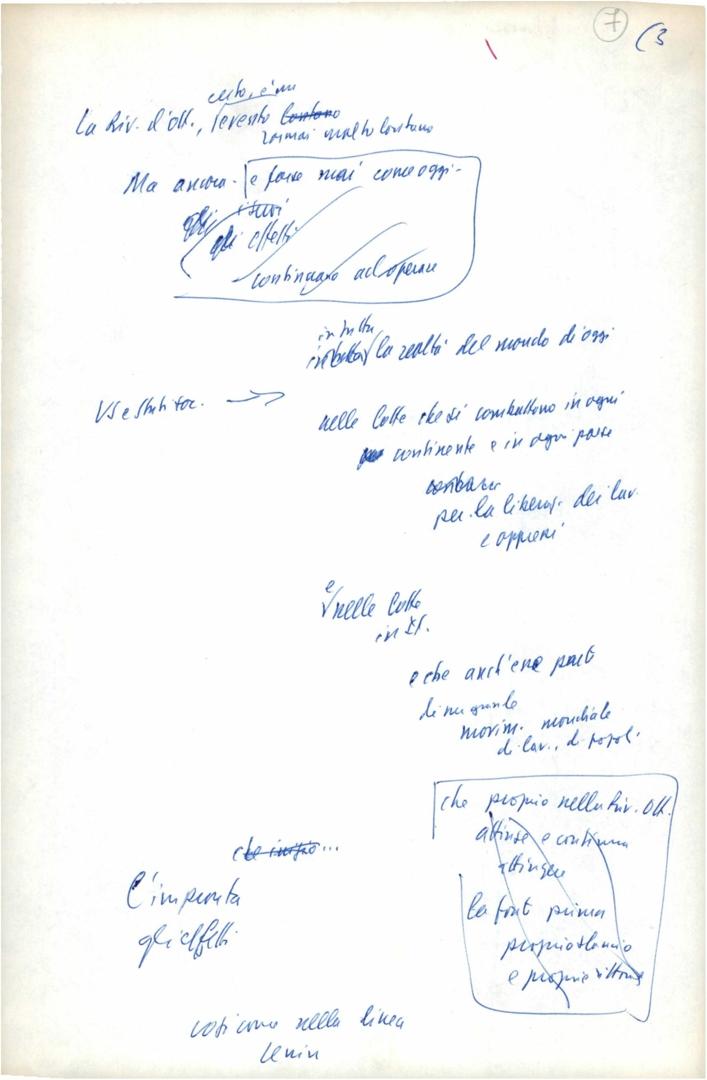 7
(3
certo, è un
La Riv. d'ott., evento lontano
ormai molto lontano
Ma ancora - e forse mai come oggi -
gli effetti
continuano ad operare
in tutta
la realtà del mondo di oggi
nelle lotte che si combattono in ogni
continente e in ogni paese
per la liberaz. dei lav.
e oppressi
e
nelle lotte
in It.
e che anch'esse parte
di un grande
movim. mondiale
di lav., di popoli
che proprio nella Riv. Ott.
attinse e continua
attingere
la fonte prima
proprio slancio
e proprie vittorie
che
L'impronta
gli effetti
così come nella linea
Lenin